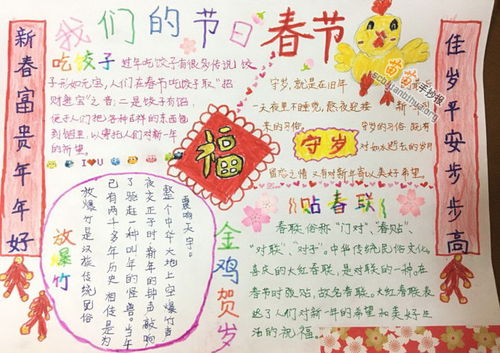 我们的节日
春节
新春富贵年年好
佳岁平安步步高
吃饺子
过年吃饺子有很多传说 饺
子形如元宝,人们在春节吃饺子取"招
财进宝"之音,二是饺子有馅,
便于人们把各种吉祥的东西包
到馅里,以寄托人们对新一年
的祈望。
I ♥ U
福
守岁,就是在旧年
一天夜里不睡觉,熬夜迎接 新
来的习俗
守岁
守岁的习俗,既有
对如水逝去的岁月
留恋之情 又有对新年寄以美好希望。
苗苗手抄报
金鸡贺岁
贴春联
春联,俗称"门对"、"春贴"、
"对联"、"对子"。中华传统民俗文化。
喜庆的大红春联,是对联的一种。在
春节时张贴,故名春联。大红春联表
达了人们对新一年的希望和美好生
活的祝福。
放爆竹
放爆竹是汉族传统民俗
已有两千多年历史 相传是为
了驱赶一种叫年的怪兽。当年
夜交正子时 新年的钟声敲响
整个中华大地上空,爆竹声
震响天宇。